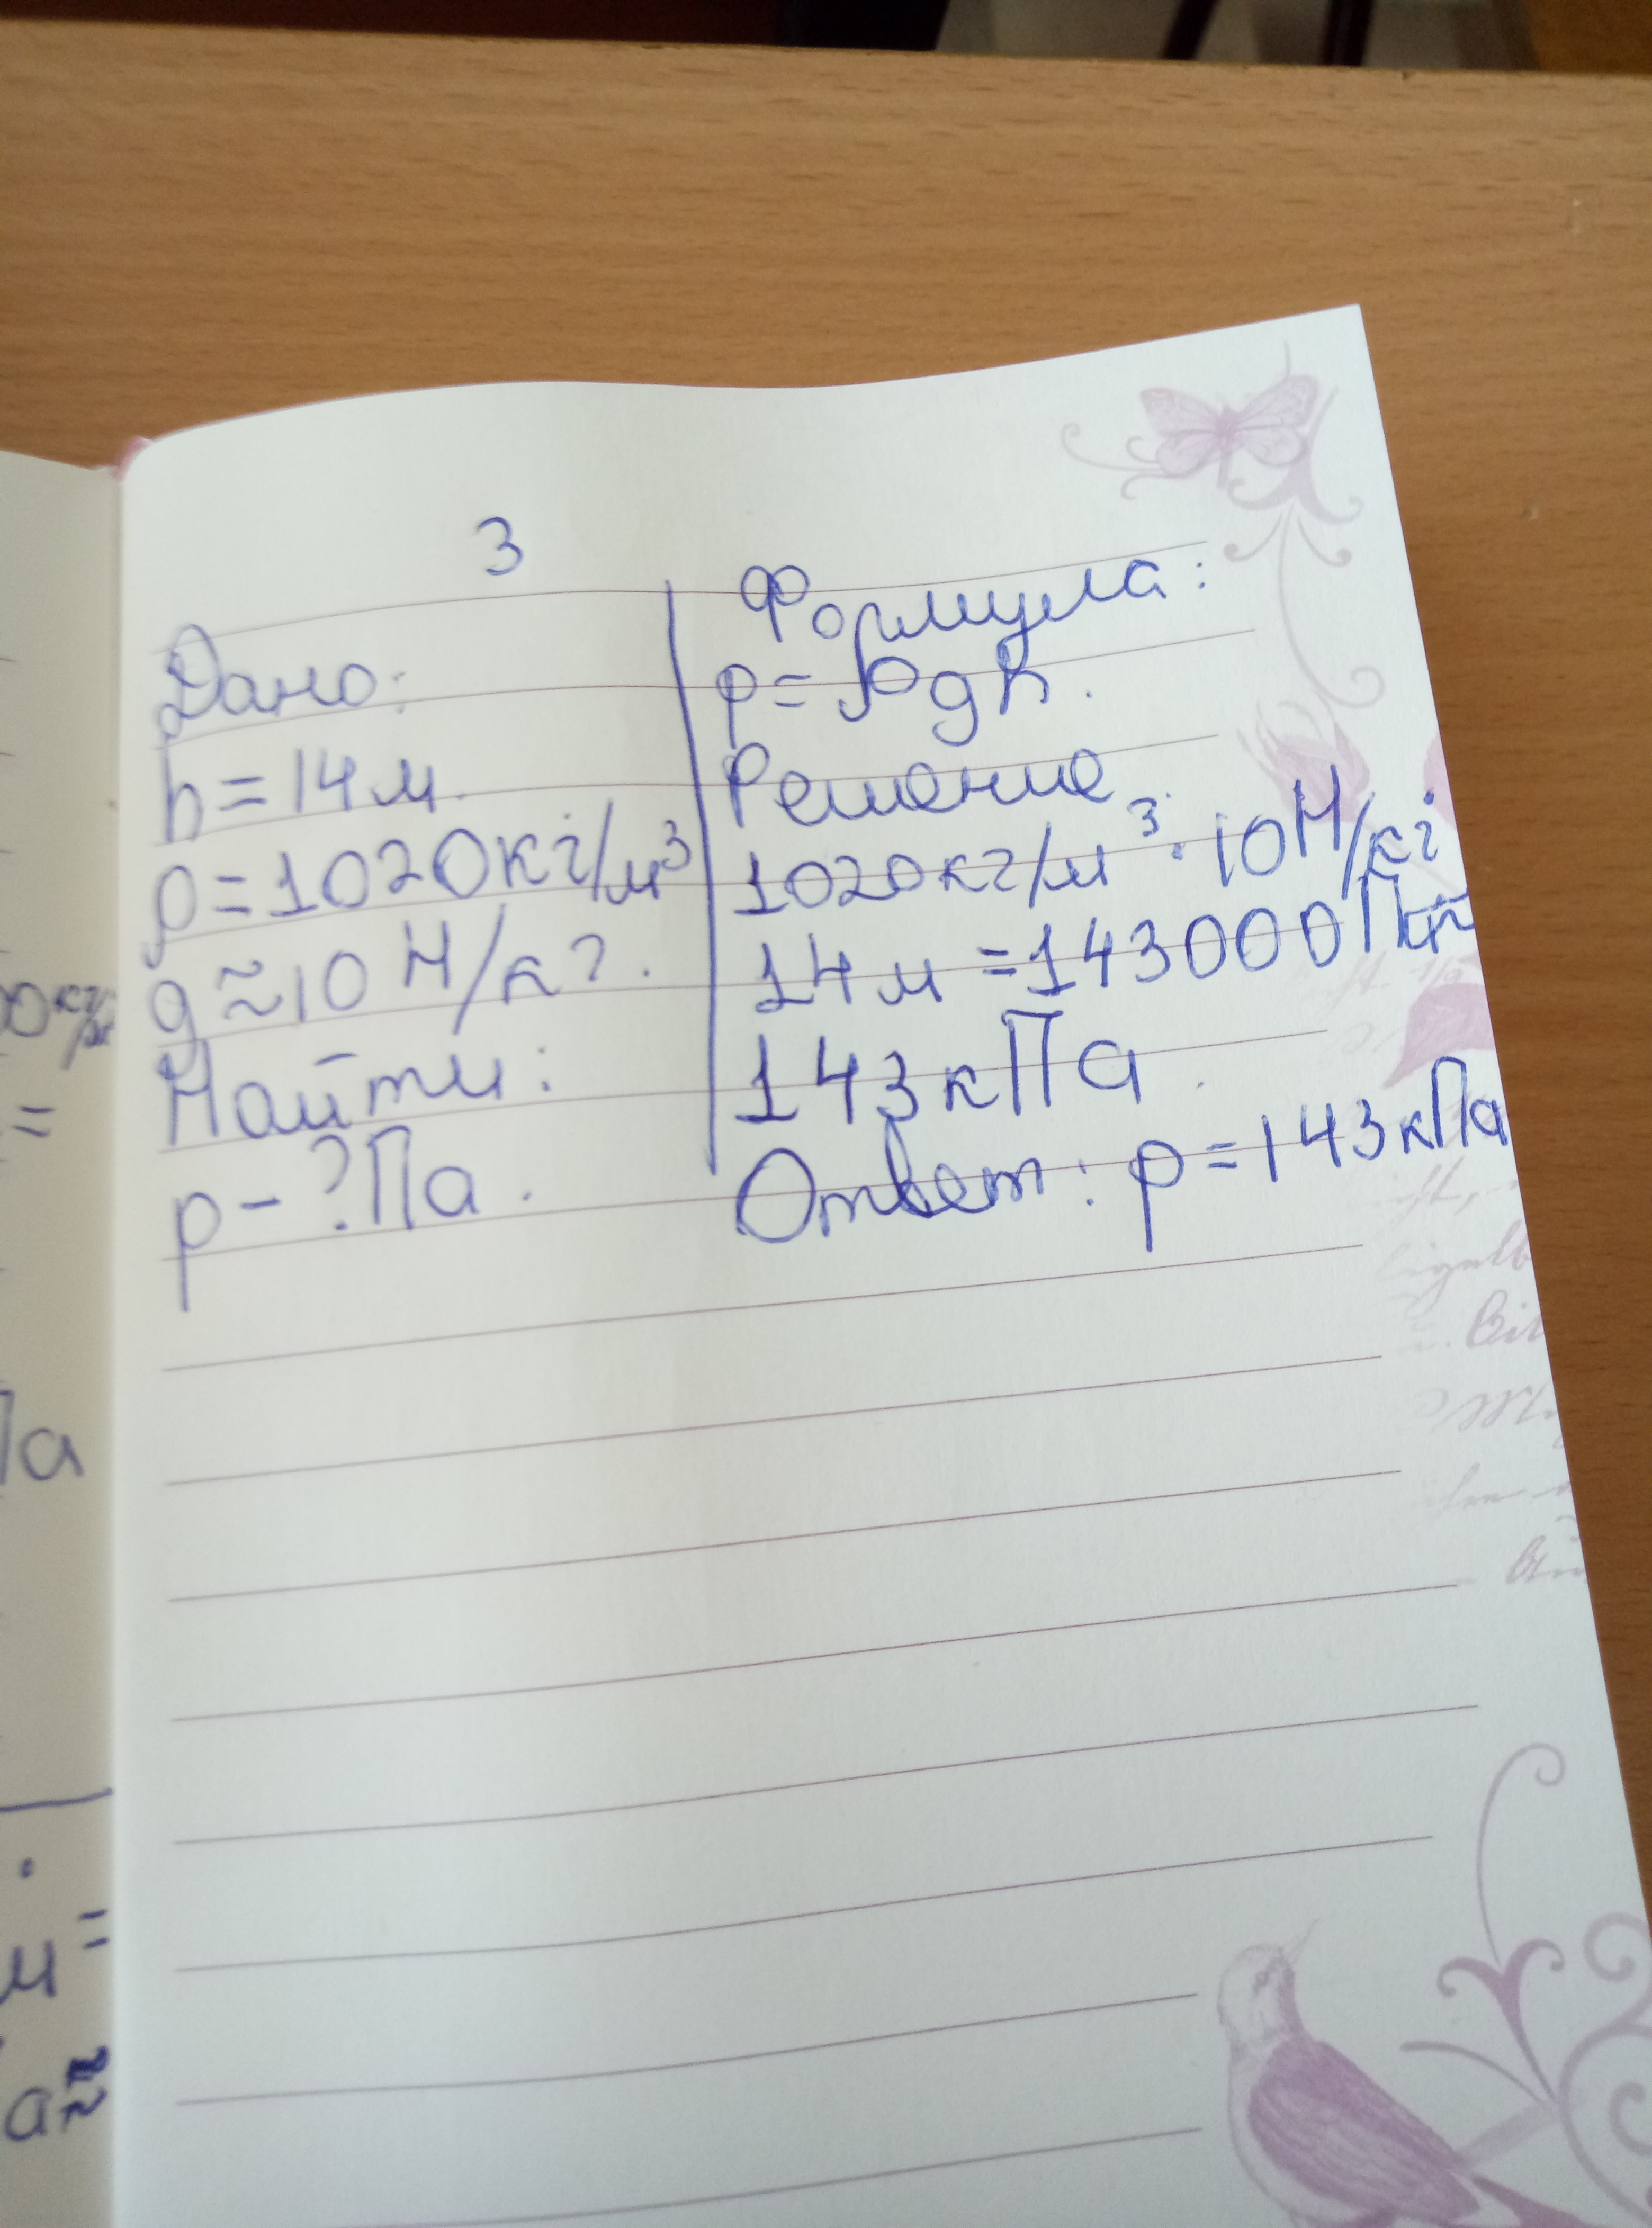 3
Дано:
h=14м.
ρ=1020кг/м³
g≈10 Н/кг.
Найти:
p-?Па.
Формула:
p=ρgh.
Решение
1020кг/м³·10Н/кг
14м=143000Па≈
143кПа.
Ответ: p=143кПа
=
Па
м=
а≈